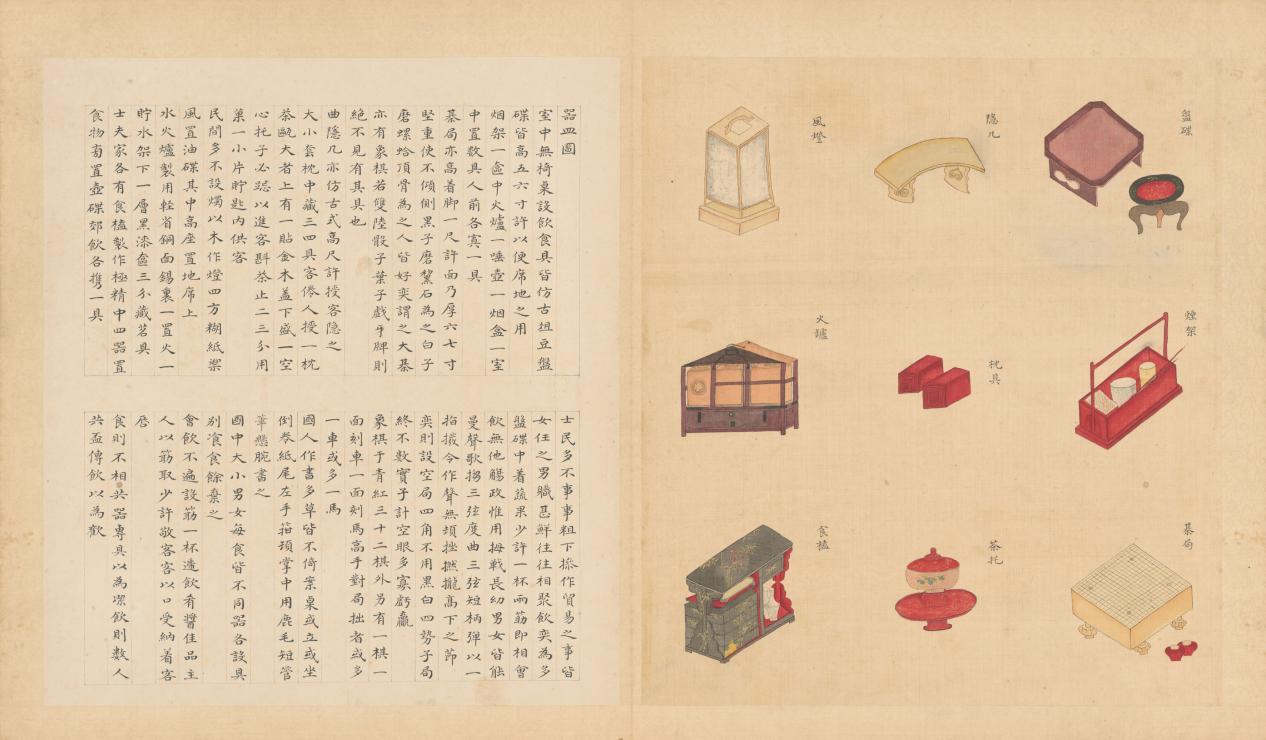 盤碟
隱几
風燈
煙架
枕具
火爐
棊局
茶托
食榼
器皿圖
室中無椅桌設飲食具皆仿古俎豆盤
碟皆高五六寸許以便席地之用
烟架一盒中火爐一唾壺一烟盒一室
中置數具人前各寘一具
棊局亦高着脚一尺許面乃厚六七寸
堅重使不傾側黑子磨黧石為之白子
磨螺蛤頂骨為之人皆好奕謂之大棊
亦有象棋若雙陸骰子葉子戲牙牌則
絕不見有其具也
曲隱几亦仿古式高尺許授客隱之
大小套枕中藏三四具客倦人授一枕
茶甌大者上有一貼金木盖下盛一空
心托子必跽以進客斟茶止二三分用
菓一小片貯匙內供客
民間多不設燭以木作燈四方糊紙禦
風置油碟其中高座置地席上
水火爐製用輕省銅面錫裏一置火一
貯水架下一層黑漆盒三分藏茗具
士夫家各有食榼製作極精中四器置
食物旁置壺碟郊飲各攜一具
士民多不事事粗下操作貿易之事皆
女任之男職甚鮮往往相聚飲奕為多
盤碟中着蔬果少許一杯兩筯即相會
飲無他觴政惟用拇戰長幼男女皆能
曼聲歌搊三弦度曲三弦短柄彈以一
指撥令作聲無頓挫撚攏高下之節
奕則設空局四角不用黑白四勢子局
終不數實子計空眼多寡虧贏
象棋于青紅三十二棋外另有一棋一
面刻車一面刻馬高手對局拙者或多
一車或多一馬
國人作書多草皆不倚案桌或立或坐
倒卷紙尾左手箝項掌中用鹿毛短管
筆懸腕書之
國中大小男女每食皆不同器各設具
別飡食餘棄之
會飲不遍設筯一杯遞飲肴醬佳品主
人以筯取少許敬客客以口受納着客
唇
食則不相共器專具以為潔飲則數人
共盃傳飲以為歡